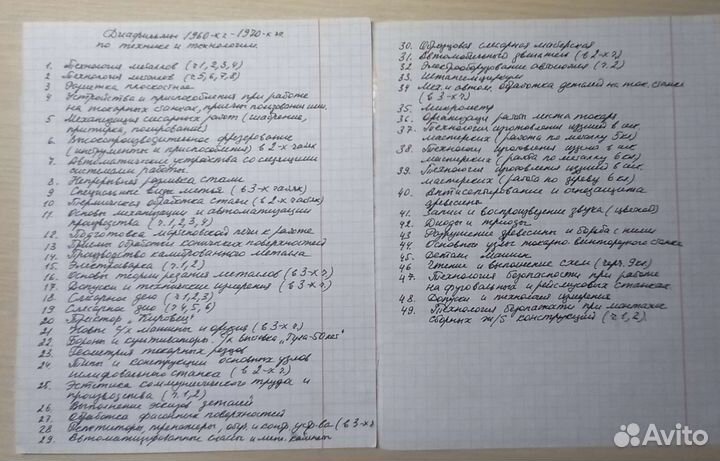 Диафильмы 1960-х г - 1970-х гг.
по технике и технологии.
1. Технология металлов (ч.1,2,3,4)
2. Технология металлов (ч.5,6,7,8)
3. Разметка плоскостная
4. Устройства и приспособления при работе
на токарных станках, приёмы пользования ими.
5. Механизация слесарных работ (шабрение,
притирка, полирование)
6. Высокопроизводительное фрезерование
(инструменты и приспособления) в 2-х частях
7. Автоматические устройства со следящими
системами работы.
8. Непрерывная разливка стали
9. Специальные виды литья (в 3-х частях)
10. Термическая обработка стали (в 2-х частях)
11. Основы механизации и автоматизации
производства (ч.1,2,3,4)
12. Подготовка мартеновской печи к работе
13. Приёмы обработки конических поверхностей
14. Производство калиброванного металла
15. Электросварка (ч.1,2)
16. Основы теории резания металлов (в 3-х ч.)
17. Допуски и технические измерения (в 3-х ч.)
18. Слесарное дело (ч.1,2,3)
19. Слесарное дело (ч.4,5,6)
20. Трактор "Кировец"
21. Новые с/х машины и орудия (в 3-х ч.)
22. Бороны и культиваторы. С/х выставка "Тула-50 лет"
23. Геометрия токарных резцов
24. Типы и конструкции основных узлов
шлифовального станка (в 2-х ч.)
25. Эстетика коммунистического труда и
производства (ч.1,2)
26. Выполнение эскизов деталей
27. Обработка фасонных поверхностей
28. Репетиторы, тренажеры, обуч. и контр. устр-ва (в 3-х ч.)
29. Автоматизированные классы и кабинеты
30. Образцовая слесарная мастерская
31. Автомобильного двигателя (в 2-х ч.)
32. Электрооборудование автомобиля (ч.2)
33. Штангенциркули
34. Мех. и автом. обработка деталей на ток. станке
(в 3-х ч.)
35. Микрометр
36. Организация работы места токаря
37. Технология изготовления изделий в шк.
мастерских (работа по металлу 5кл)
38. Технология изготовления изделий в шк.
мастерских (работа по металлу 6кл)
39. Технология изготовления изделий в шк.
мастерских (работа по дереву 6кл)
40. Антисептирование и огнезащита
древесины
41. Запись и воспроизведение звука (цветной)
42. Диоды и триоды
43. Разрушение древесины и борьба с ними
44. Основные узлы токарно-винторезного станка
45. Детали машин.
46. Чтение и выполнение схем (черч. 9кл)
47. Технология безопасности при работе
на фуговальных и рейсмусовых станках
48. Допуски и технология измерения
49. Технология безопасности при монтаже
сборных ж/б конструкций (ч.1,2).
Avito